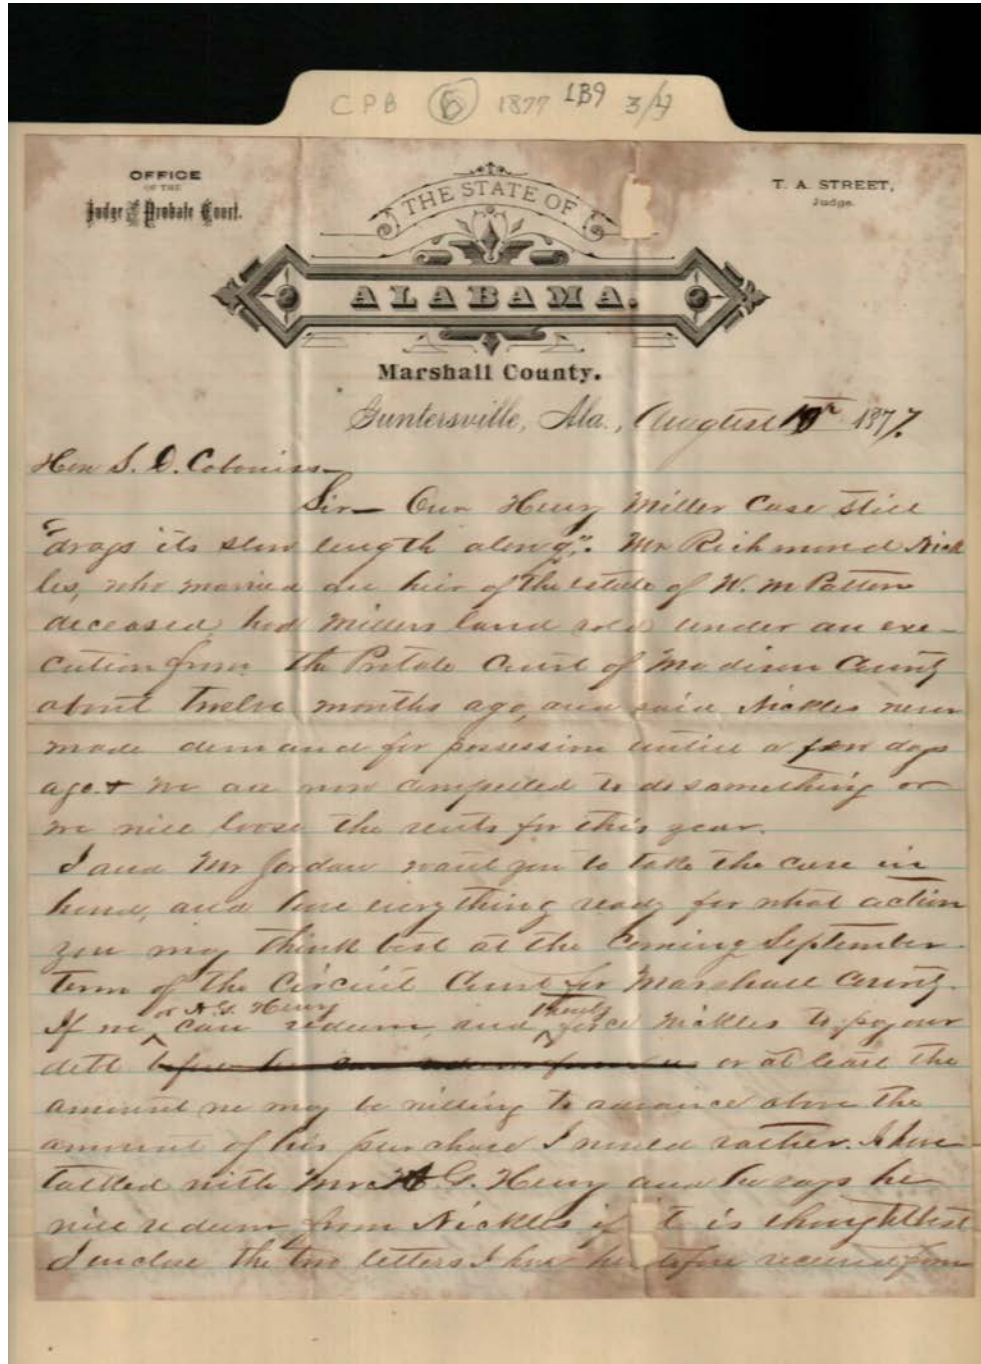 CPB 6 1877 1B9 3/4
OFFICE
OF THE
Judge of the Probate Court.
T. A. STREET,
Judge.
THE STATE OF
ALABAMA.
Marshall County.
Guntersville, Ala., August 10th 1877.
Hon S. D. Cabaniss
Sir— Our Henry Miller Case still
"drags its slow length along". Mr Richmond Nick
les, who married an heir of the estate of W. M Patton
deceased, had Millers land sold under an exe-
cution from the Probate Court of Madison County
about twelve months ago, and said Nickles never
made demand for possession untill a few days
ago & we are now compelled to do something or
we will loose the rents for this year.
I and Mr Jordan want you to take the case in
hand, and have everything ready for what action
you may think best at the coming September
Term of the Circuit Court for Marshall County.
If we or A. G. Henry can redeem, and force Nickles to pay our
debt or at least the
amount we may be willing to advance above the
amount of his purchase I would rather. I have
talked with Mr A. G. Henry and he says he
will redeem from Nickles if it is thought best
I enclose the two letters I have heretofore received from